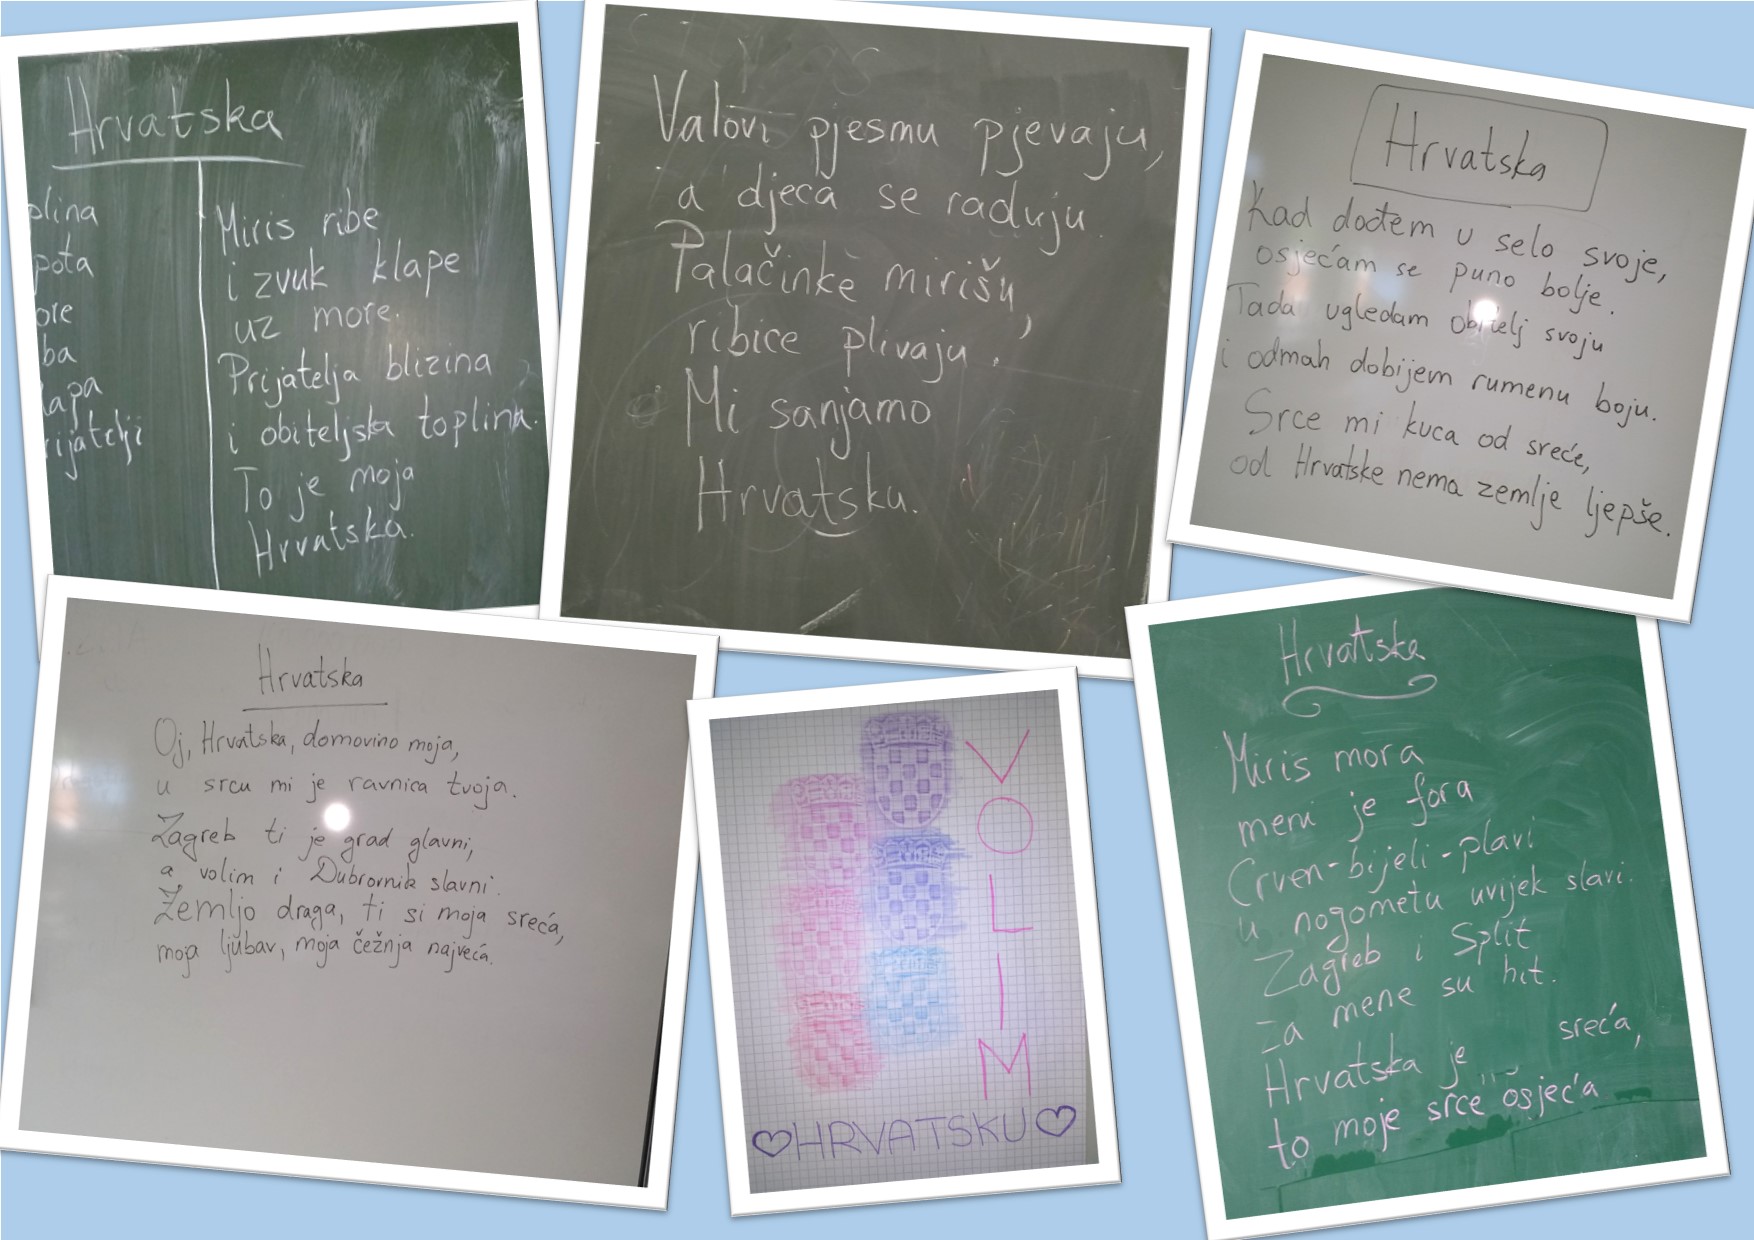 Hrvatska
plina
pota
ore
ba
lapa
rijatelji
Miris ribe
i zvuk klape
uz more.
Prijatelja blizina
i obiteljska toplina.
To je moja
Hrvatska.
Valovi pjesmu pjevaju,
a djeca se raduju.
Palačinke mirišu,
ribice plivaju.
Mi sanjamo
Hrvatsku.
Hrvatska
Kad dođem u selo svoje,
osjećam se puno bolje.
Tada ugledam obitelj svoju
i odmah dobijem rumenu boju.
Srce mi kuca od sreće,
od Hrvatske nema zemlje ljepše.
Hrvatska
Oj, Hrvatska, domovino moja,
u srcu mi je ravnica tvoja.
Zagreb ti je grad glavni,
a volim i Dubrovnik slavni.
Zemljo draga, ti si moja sreća,
moja ljubav, moja čežnja najveća.
VOLIM
HRVATSKU
Hrvatska
Miris mora
meni je fora
Crven-bijeli-plavi
u nogometu uvijek slavi.
Zagreb i Split
za mene su hit.
Hrvatska je ... sreća,
to moje srce osjeća